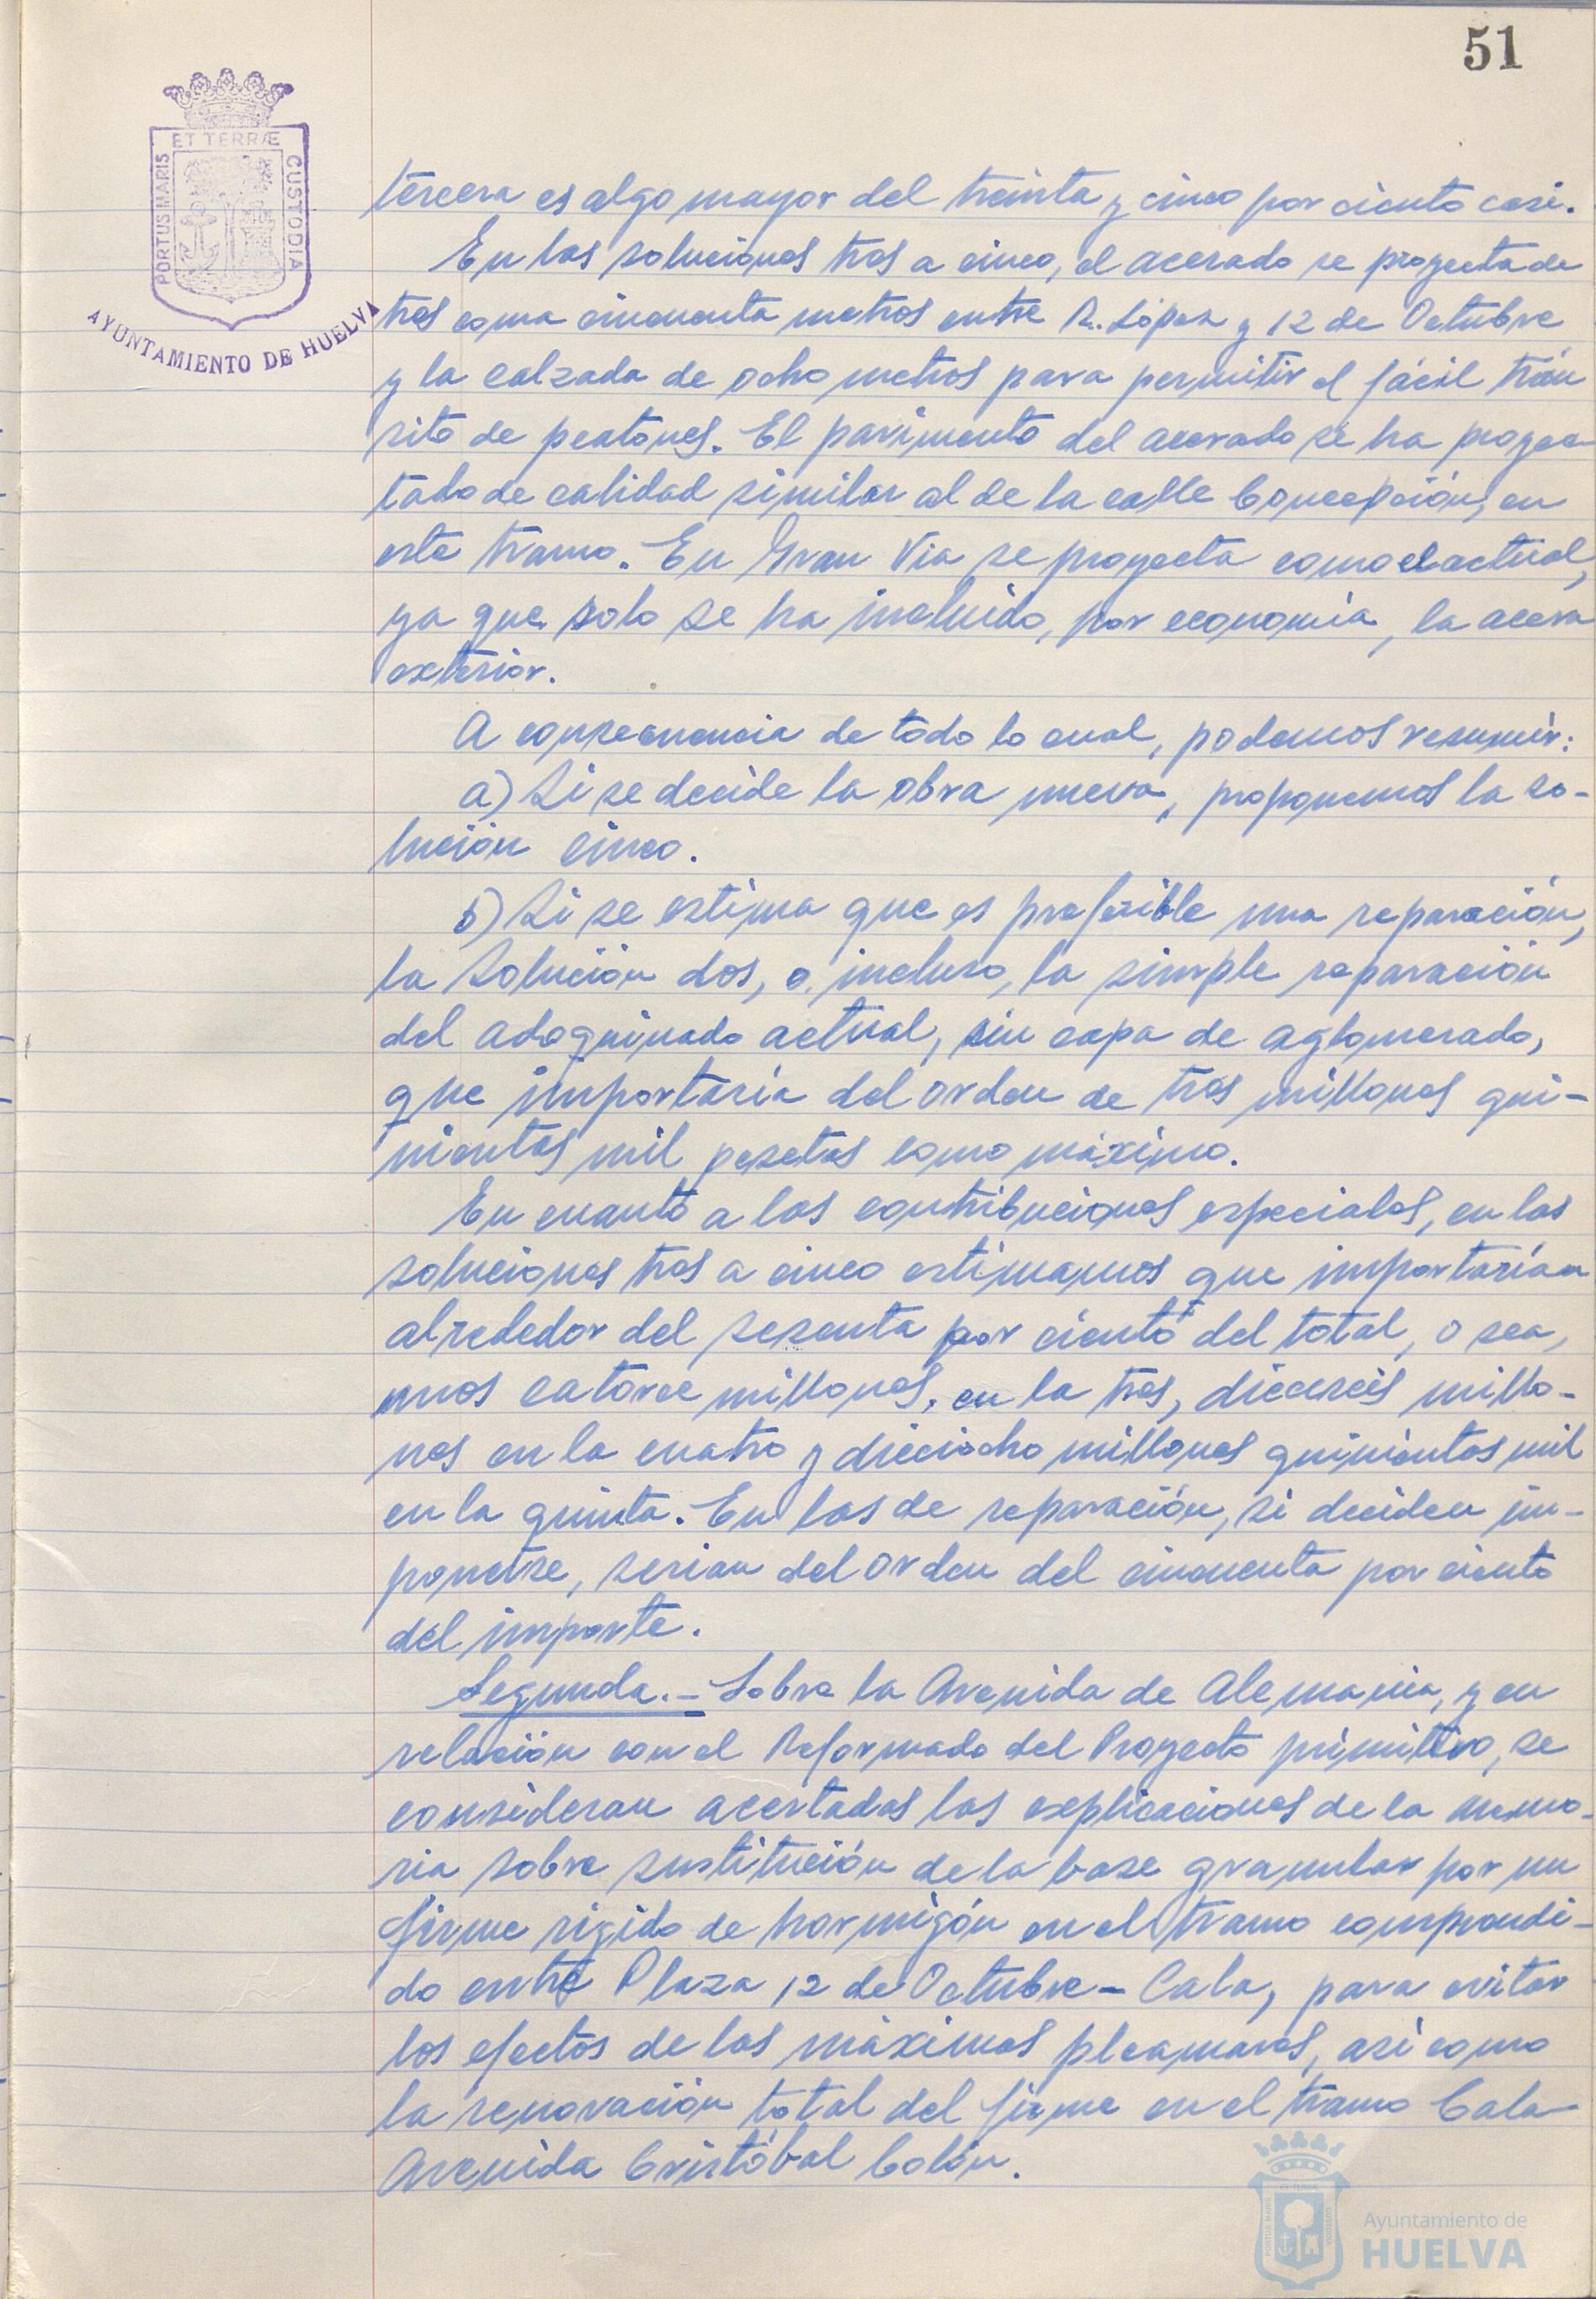 51
ET TERRÆ
PORTUS MARIS
CUSTODIA
AYUNTAMIENTO DE HUELVA
tercera es algo mayor del treinta y cinco por ciento casi.
En las soluciones tres a cinco, el acerado se proyecta de
tres coma cincuenta metros entre R. López y 12 de Octubre
y la calzada de ocho metros para permitir el fácil trán
sito de peatones. El pavimento del acerado se ha proyec
tado de calidad similar al de la calle Concepción, en
este tramo. En Gran Via se proyecta como el actual,
ya que solo se ha incluido, por economía, la acera
exterior.
A consecuencia de todo lo cual, podemos resumir:
a) Si se decide la obra nueva, proponemos la so-
lución cinco.
b) Si se estima que es preferible una reparación,
la solución dos, o, incluso, la simple reparación
del adoquinado actual, sin capa de aglomerado,
que importaría del orden de tres millones qui-
nientas mil pesetas como máximo.
En cuanto a las contribuciones especiales, en las
soluciones tres a cinco estimamos que importarían
alrededor del sesenta por ciento del total, o sea,
unos catorce millones, en la tres, dieciseis millo-
nes en la cuatro y dieciocho millones quinientas mil
en la quinta. En las de reparación, si deciden im-
ponerse, serian del orden del cincuenta por ciento
del importe.
Segunda.- Sobre la Avenida de Alemania, y en
relación con el Reformado del Proyecto primitivo, se
consideran acertadas las explicaciones de la memo-
ria sobre sustitución de la base granular por un
firme rigido de hormigón en el tramo comprendi-
do entre Plaza 12 de Octubre - Cala, para evitar
los efectos de las máximas pleamares, asi como
la renovación total del firme en el tramo Cala-
Avenida Cristóbal Colón.
Ayuntamiento de
HUELVA